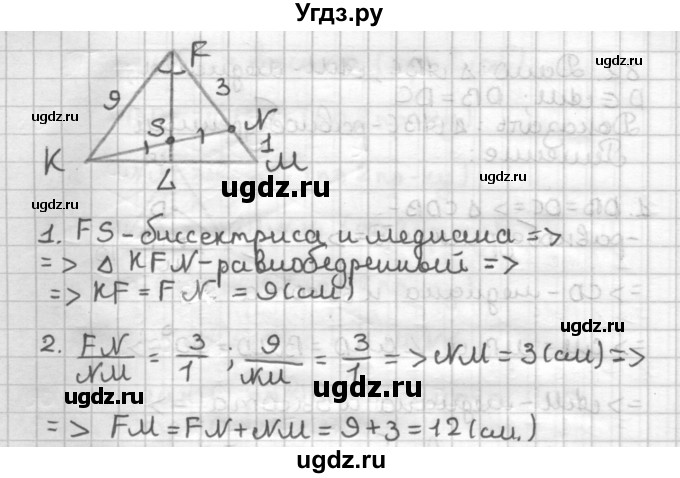 Угдз.ру
F
9
3
S
N
1
1
1
K
M
L
ugdz.ru
ugdz.ru
ugdz.ru
ugdz.ru
1. FS - биссектриса и медиана =>
=> Δ KFN - равнобедренный =>
=> KF = FN = 9 (см)
ugdz.ru
ugdz.ru
2. FN/NM = 3/1 ; 9/NM = 3/1 => NM = 3 (см) =>
ugdz.ru
ugdz.ru
=> FM = FN + NM = 9 + 3 = 12 (см.)
ugdz.ru
ugdz.ru